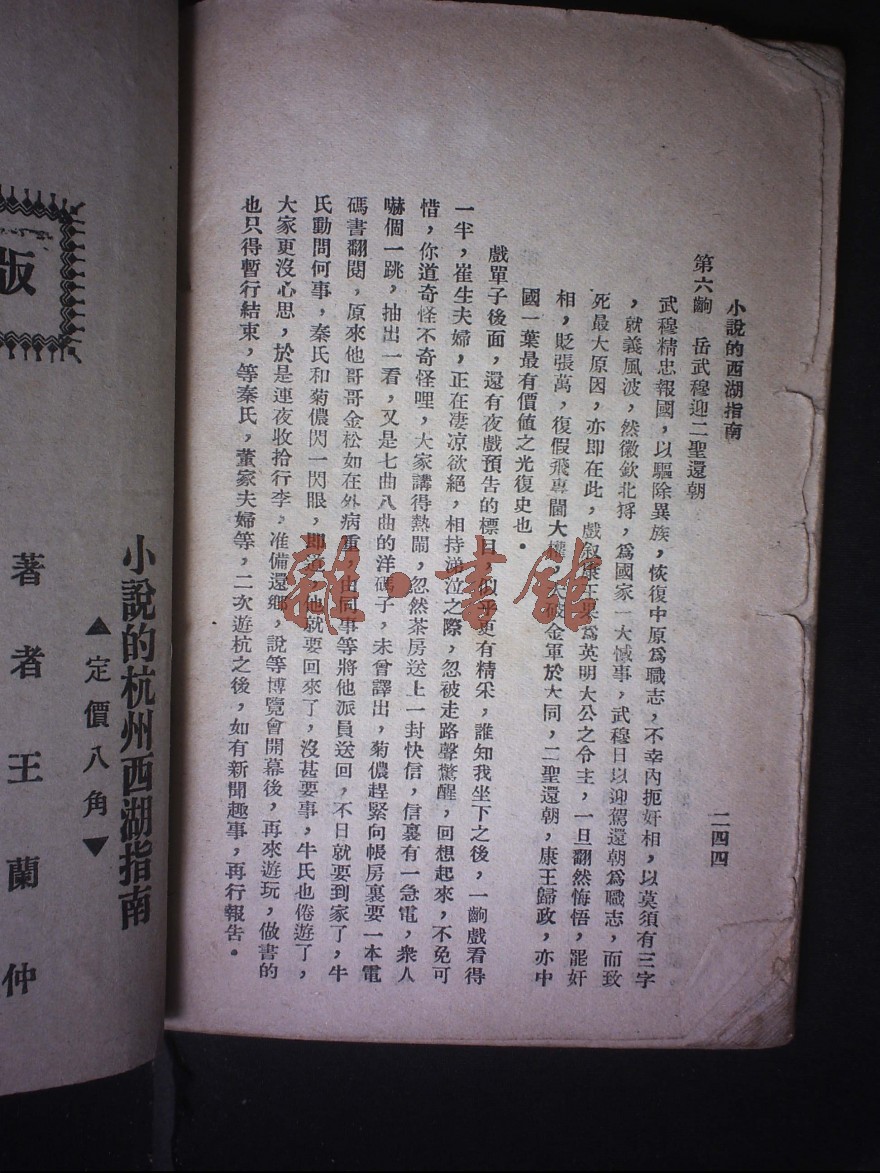 小說的西湖指南
二四四
第六齣　岳武穆迎二聖還朝
武穆精忠報國，以驅除異族，恢復中原爲職志，不幸內扼奸相，以莫須有三字
，就義風波，然徽欽北狩，爲國家一大憾事，武穆日以迎駕還朝爲職志，而致
死最大原因，亦卽在此，戲叙康王果爲英明大公之令主，一旦翻然悔悟，罷奸
相，貶張萬，復假飛專閫大權，大破金軍於大同，二聖還朝，康王歸政，亦中
國一葉最有價値之光復史也．
戲單子後面，還有夜戲預告的標目，似乎更有精采，誰知我坐下之後，一齣戲看得
一半，崔生夫婦，正在凄凉欲絕，相持涕泣之際，忽被走路聲驚醒，回想起來，不免可
惜，你道奇怪不奇怪哩，大家講得熱鬧，忽然茶房送上一封快信，信裏有一急電，衆人
嚇個一跳，抽出一看，又是七曲八曲的洋碼子，未曾譯出，菊儂趕緊向帳房裏要一本電
碼書翻閱，原來他哥哥金松如在外病重，由同事等將他派員送回，不日就要到家了，牛
氏動問何事，秦氏和菊儂閃一閃眼，卽說，他就要回來了，沒甚要事，牛氏也倦遊了，
大家更沒心思，於是連夜收拾行李，准備還鄉，說等博覽會開幕後，再來遊玩，做書的
也只得暫行結束，等秦氏，董家夫婦等，二次遊杭之後，如有新聞趣事，再行報告。
版
小說的杭州西湖指南
▲定價八角▼
著者王蘭仲
雜·書館